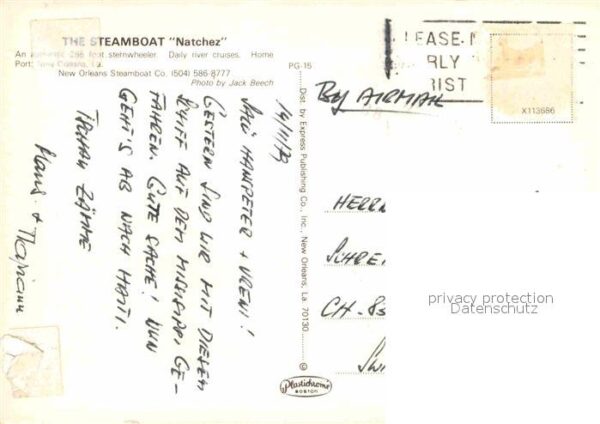 THE STEAMBOAT "Natchez"
An authentic 285 foot sternwheeler. Daily river cruises. Home
Port: New Orleans, La.
New Orleans Steamboat Co. (504) 586-8777
Photo by Jack Beech
PG-15
Dist. by Express Publishing Co., Inc., New Orleans, La. 70130
©
Plastichrome
BOSTON
14/11/79
SALÜ HANSPETER + VRENI!
GESTERN SIND WIR MIT DIESEM
SCHIFF AUF DEM MISSISSIPPI GE-
FAHREN. GUTE SACHE! NUN
GEHT'S AB NACH HAITI.
TSCHAU ZÄMME
Hans + Marianne
BY AIRMAIL
LEASE
RLY
RIST
X113686
HERRN
SCHRE
CH-83
SW
privacy protection
Datenschutz